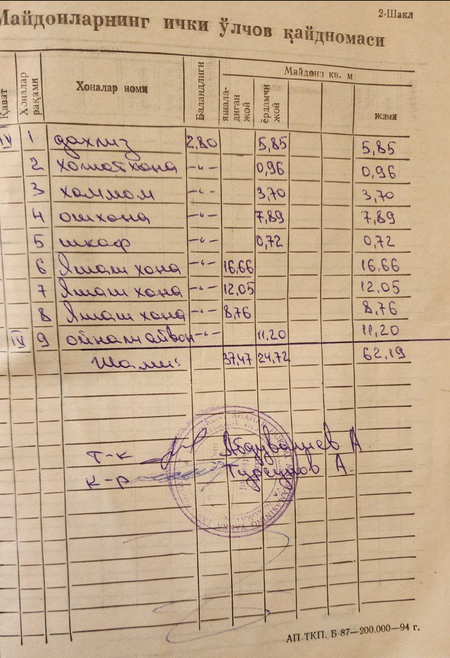 2-Шакл
Майдонларнинг ички ўлчов қайдномаси
Қават Хоналар рақами Хоналар номи Баландлиги Майдони кв. м
яшала-диган жой ёрдамчи жой жами
IV 1 дахлиз 2,80 5,85 5,85
2 хожатхона -"- 0,96 0,96
3 хаммом -"- 3,70 3,70
4 ошхона -"- 7,89 7,89
5 шкаф -"- 0,72 0,72
6 Яшаш хона -"- 16,66 16,66
7 Яшаш хона -"- 12,05 12,05
8 Яшаш хона -"- 8,76 8,76
IV 9 ойнали айвон -"- 11,20 11,20
Жами: 37,47 24,72 62,19
т-к А
к-р Турсунов А.
АП ТКП. Б-87—200.000—94 г.